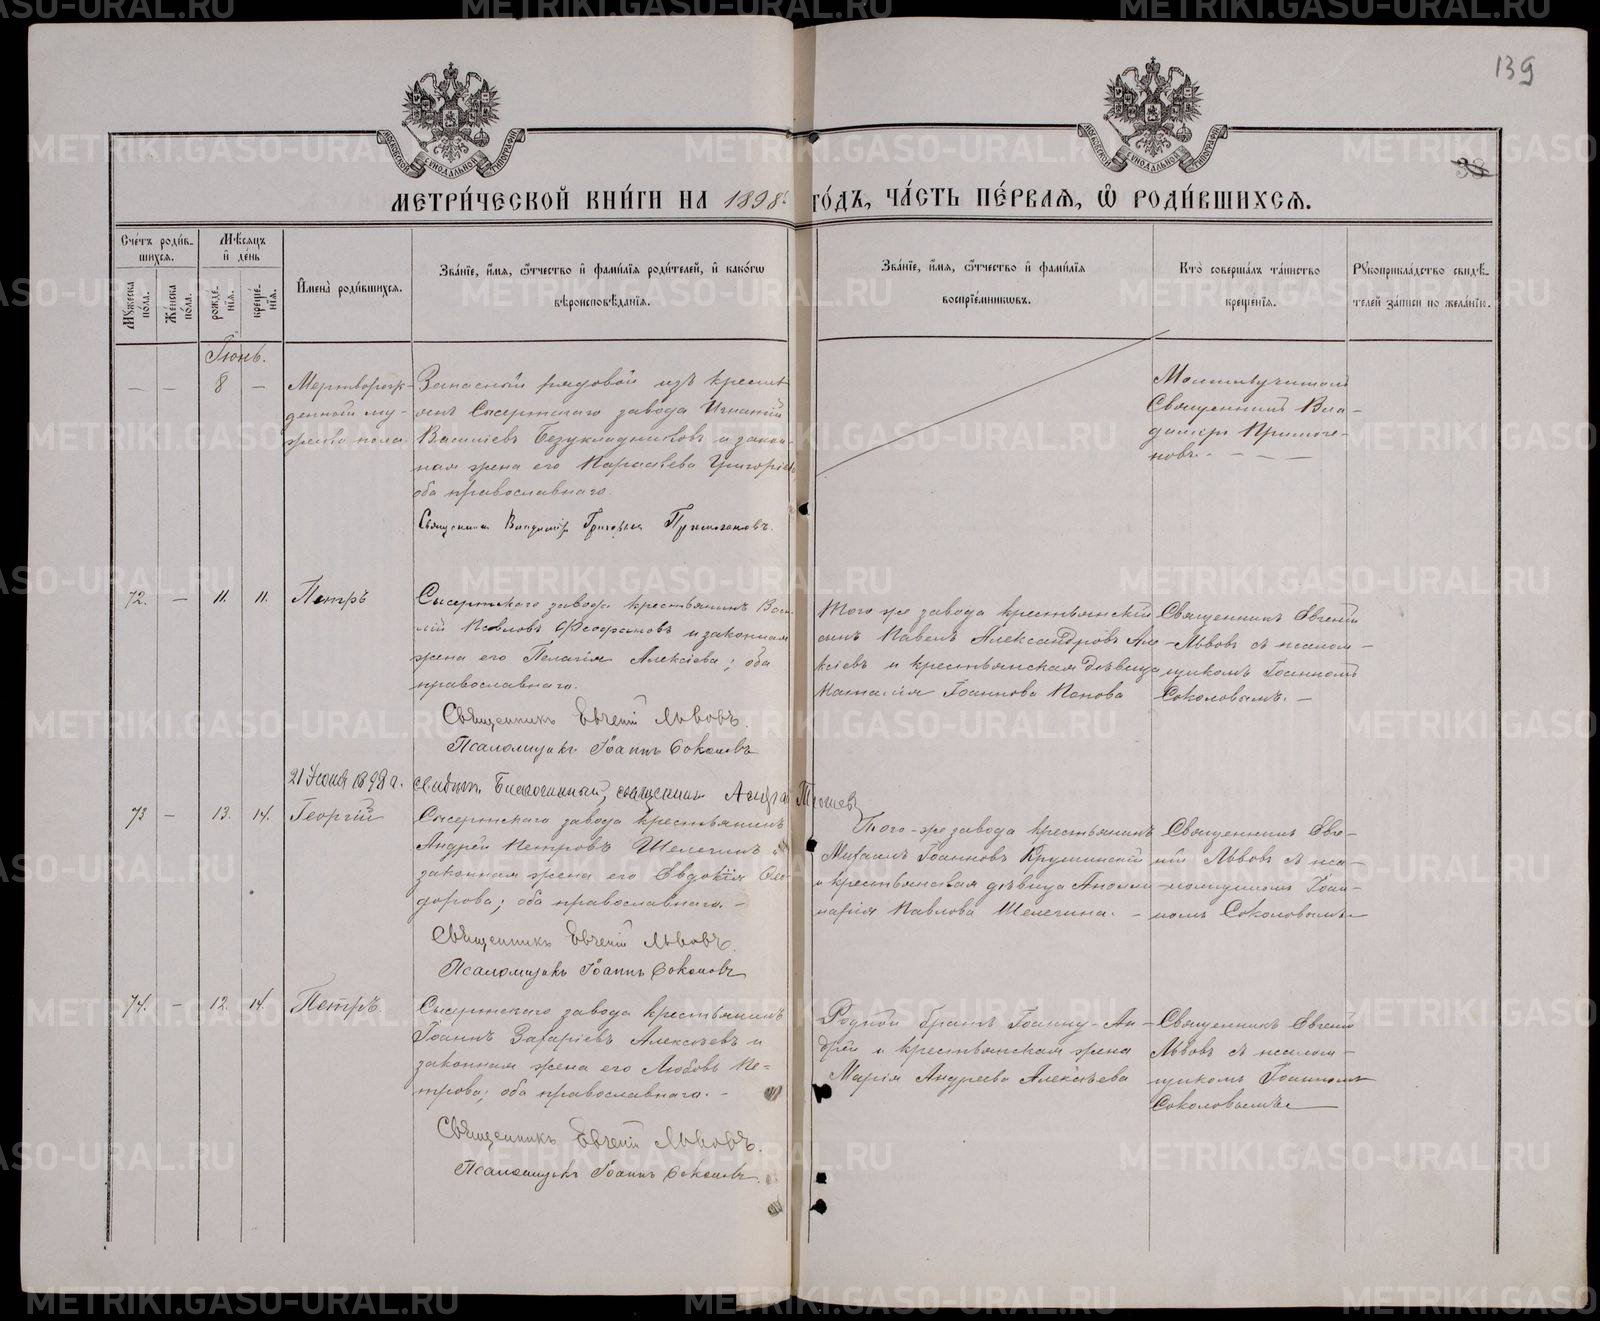 139
38
МОСКОВСКОЙ СѴНОДАЛЬНОЙ ТИПОГРАФІИ
МОСКОВСКОЙ СѴНОДАЛЬНОЙ ТИПОГРАФІИ
МЕТРИ́ЧЕСКОЙ КНИ́ГИ НА 1898 ГО́ДЪ, ЧА́СТЬ ПЕ́РВАѦ, Ѡ҆ РОДИ́ВШИХСѦ.
Сче́тъ роди́в-
шихся.
Мꙋ́жеска по́ла.
Же́нска по́ла.
Мѣ́сяцъ
и҆ де́нь
рожде́-
нїя.
креще́-
нїя.
И҆мена̀ роди́вшихся.
Зва́нїе, и҆́мя, ѻ҆́тчество и҆ фами́лїя роди́телей, и҆ како́гѡ
вѣроисповѣ́данїя.
Зва́нїе, и҆́мя, ѻ҆́тчество и҆ фами́лїя
воспрїе́мникѡвъ.
Кто̀ соверша́лъ та́инство
креще́нїя.
Рꙋкоприкла́дство свидѣ́-
телей за́писи по жела́нїю.
Іюнь.
— — 8 —
Мертворож-
денный му-
жеска пола
Запасный рядовой изъ кресть-
янъ Сысертскаго завода Игнатій
Василіевъ Безукладниковъ и закон-
ная жена его Параскева Григоріева
оба православнаго.
Священникъ Владиміръ Григорьевъ Примогеновъ.
Молитвучиталъ
Священникъ Вла-
диміръ Примоге-
новъ. - - —
72. — 11. 11. Петръ
Сысертскаго завода крестьянинъ Васи-
лій Павловъ Феофановъ и законная
жена его Пелагія Алексіева; оба
православнаго.
Священникъ Евгеній Львовъ.
Псаломщикъ Іоаннъ Соколовъ
Того же завода крестьянскій
сынъ Павелъ Александровъ Але-
ксіевъ и крестьянская дѣвица
Наталія Іоаннова Попова
Священникъ Евгеній
Львовъ съ псалом-
щикомъ Іоанномъ
Соколовымъ. —
21 Іюня 1898 г. свидѣт. Благочинный, священникъ
73 — 13. 14. Георгій
Сысертскаго завода крестьянинъ
Андрей Петровъ Шелегинъ и
законная жена его Евдокія Ѳео-
дорова; оба православнаго. -
Священникъ Евгеній Львовъ.
Псаломщикъ Іоаннъ Соколовъ
Того-же завода крестьянинъ
Михаилъ Іоанновъ Крушинскій
и крестьянская дѣвица Аполли-
нарія Павлова Шелегина. -
Священникъ Евге-
ній Львовъ съ пса-
ломщикомъ Іоан-
номъ Соколовымъ
74. — 12. 14. Петръ.
Сысертскаго завода крестьянинъ
Іоаннъ Захаріевъ Алексѣевъ и
законная жена его Любовь Пе-
трова; оба православнаго. -
Священникъ Евгеній Львовъ.
Псаломщикъ Іоаннъ Соколовъ.
Родной братъ Іоанну - Ан-
дрей и крестьянская жена
Марія Андреева Алексѣева
Священникъ Евгеній
Львовъ съ псалом-
щикомъ Іоанномъ
Соколовымъ
METRIKI.GASO-URAL.RU